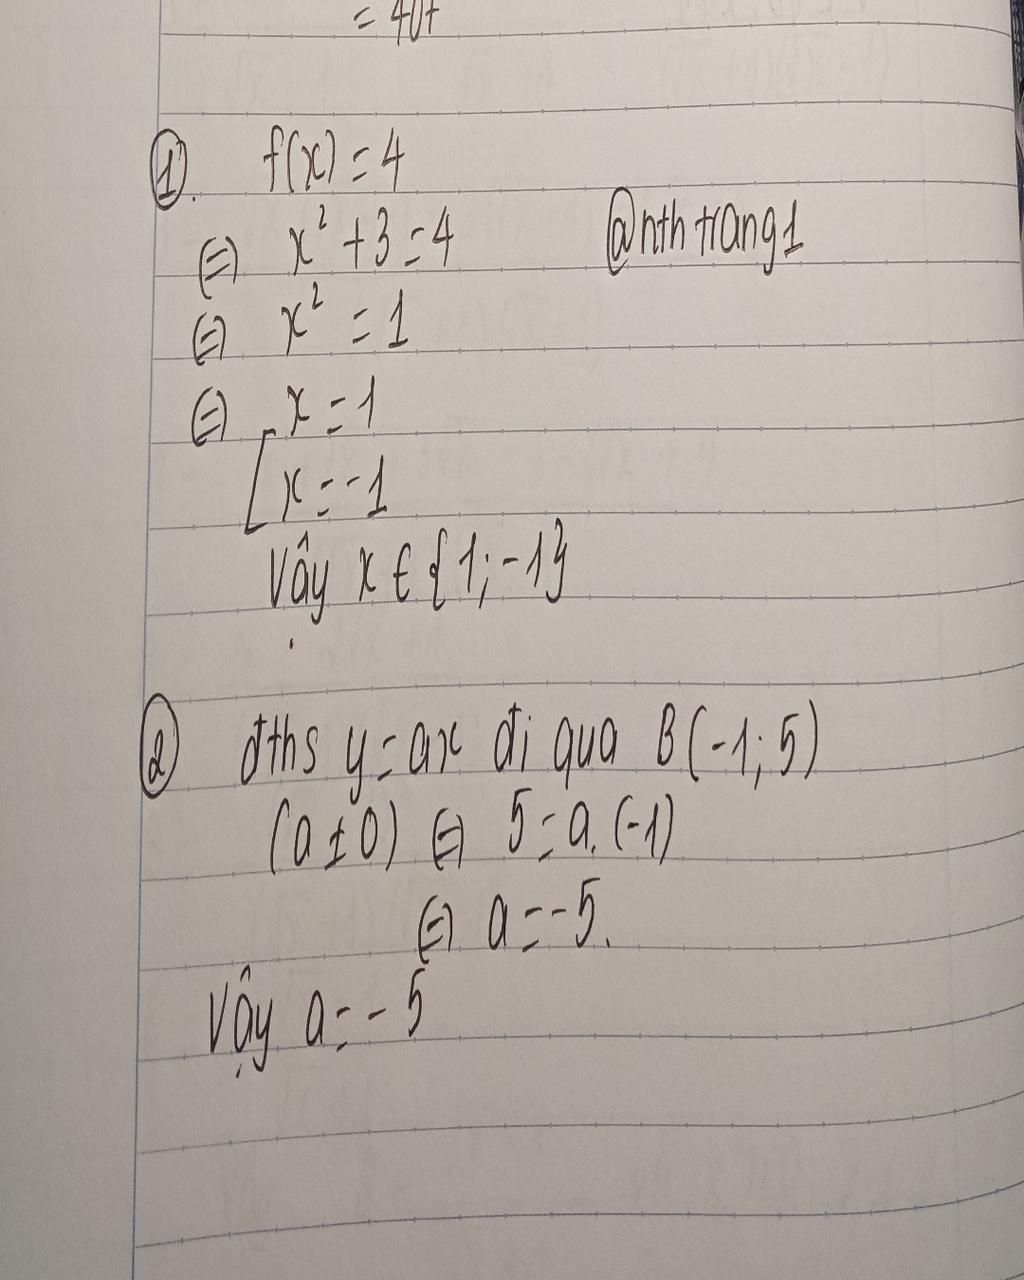 = 407
① f(x) = 4
⇔ x² + 3 = 4 @nthtrang1
⇔ x² = 1
⇔ [ x = 1
x = -1
Vậy x ∈ {1; -1}
② đths y = ax đi qua B(-1; 5)
(a ≠ 0) ⇔ 5 = a. (-1)
⇔ a = -5.
Vậy a = - 5